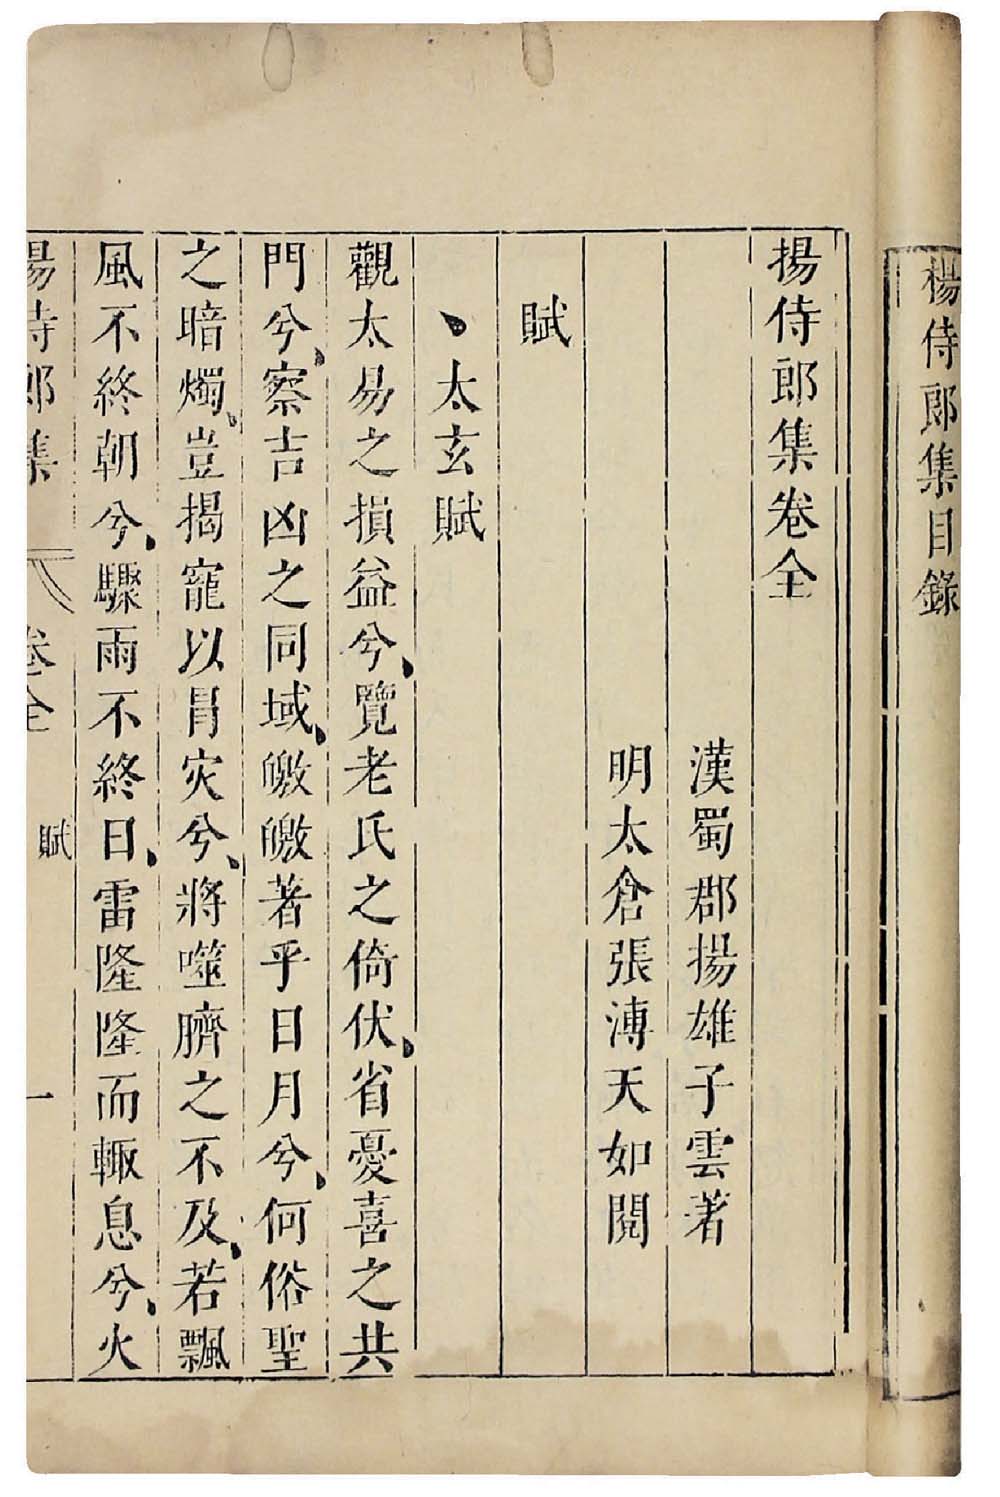 楊侍郎集目錄
揚侍郎集卷全
漢蜀郡揚雄子雲著
明太倉張溥天如閱
賦
太玄賦
觀太易之損益兮、覽老氏之倚伏、省憂喜之共
門兮、察吉凶之同域、皦皦著乎日月兮、何俗聖
之暗燭、豈揭寵以冐灾兮、將噬臍之不及、若飄
風不終朝兮、驟雨不終日、雷隆隆而輙息兮、火
揚侍郎集 卷全 賦 一